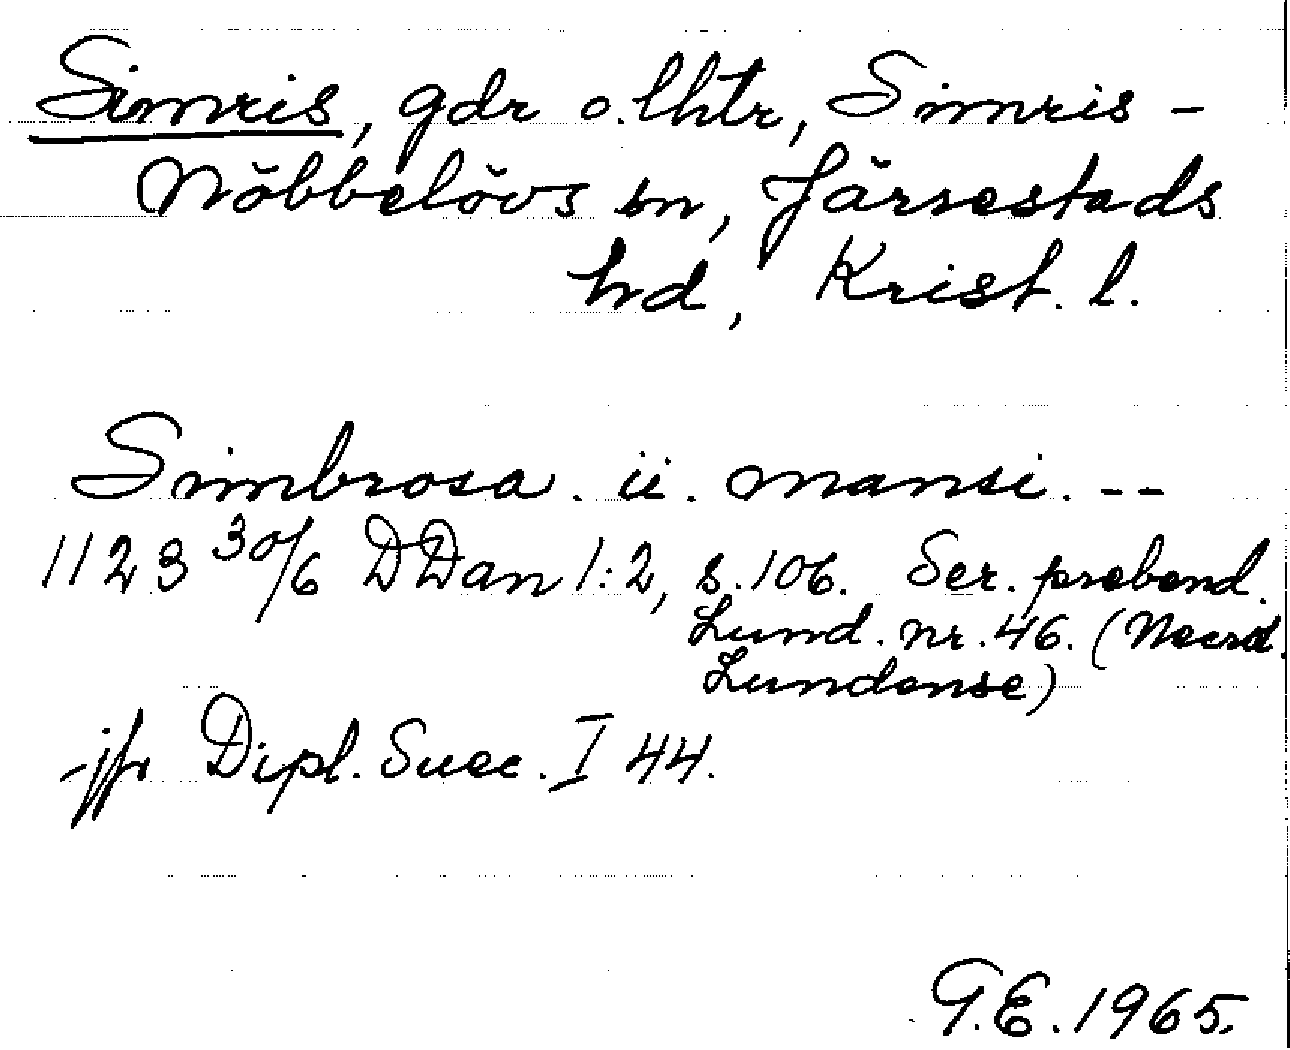 Simris, gdr o. lhtr, Simris-
Nöbbelövs sn, Järrestads
hd, Krist. l.
Simbrosa. ii. mansi. --
1123 30/6 DDan 1:2, s. 106. Ser. prebend.
Lund. nr. 46. (Necrol.
Lundense)
- jfr Dipl. Suec. I 44.
G.E. 1965.